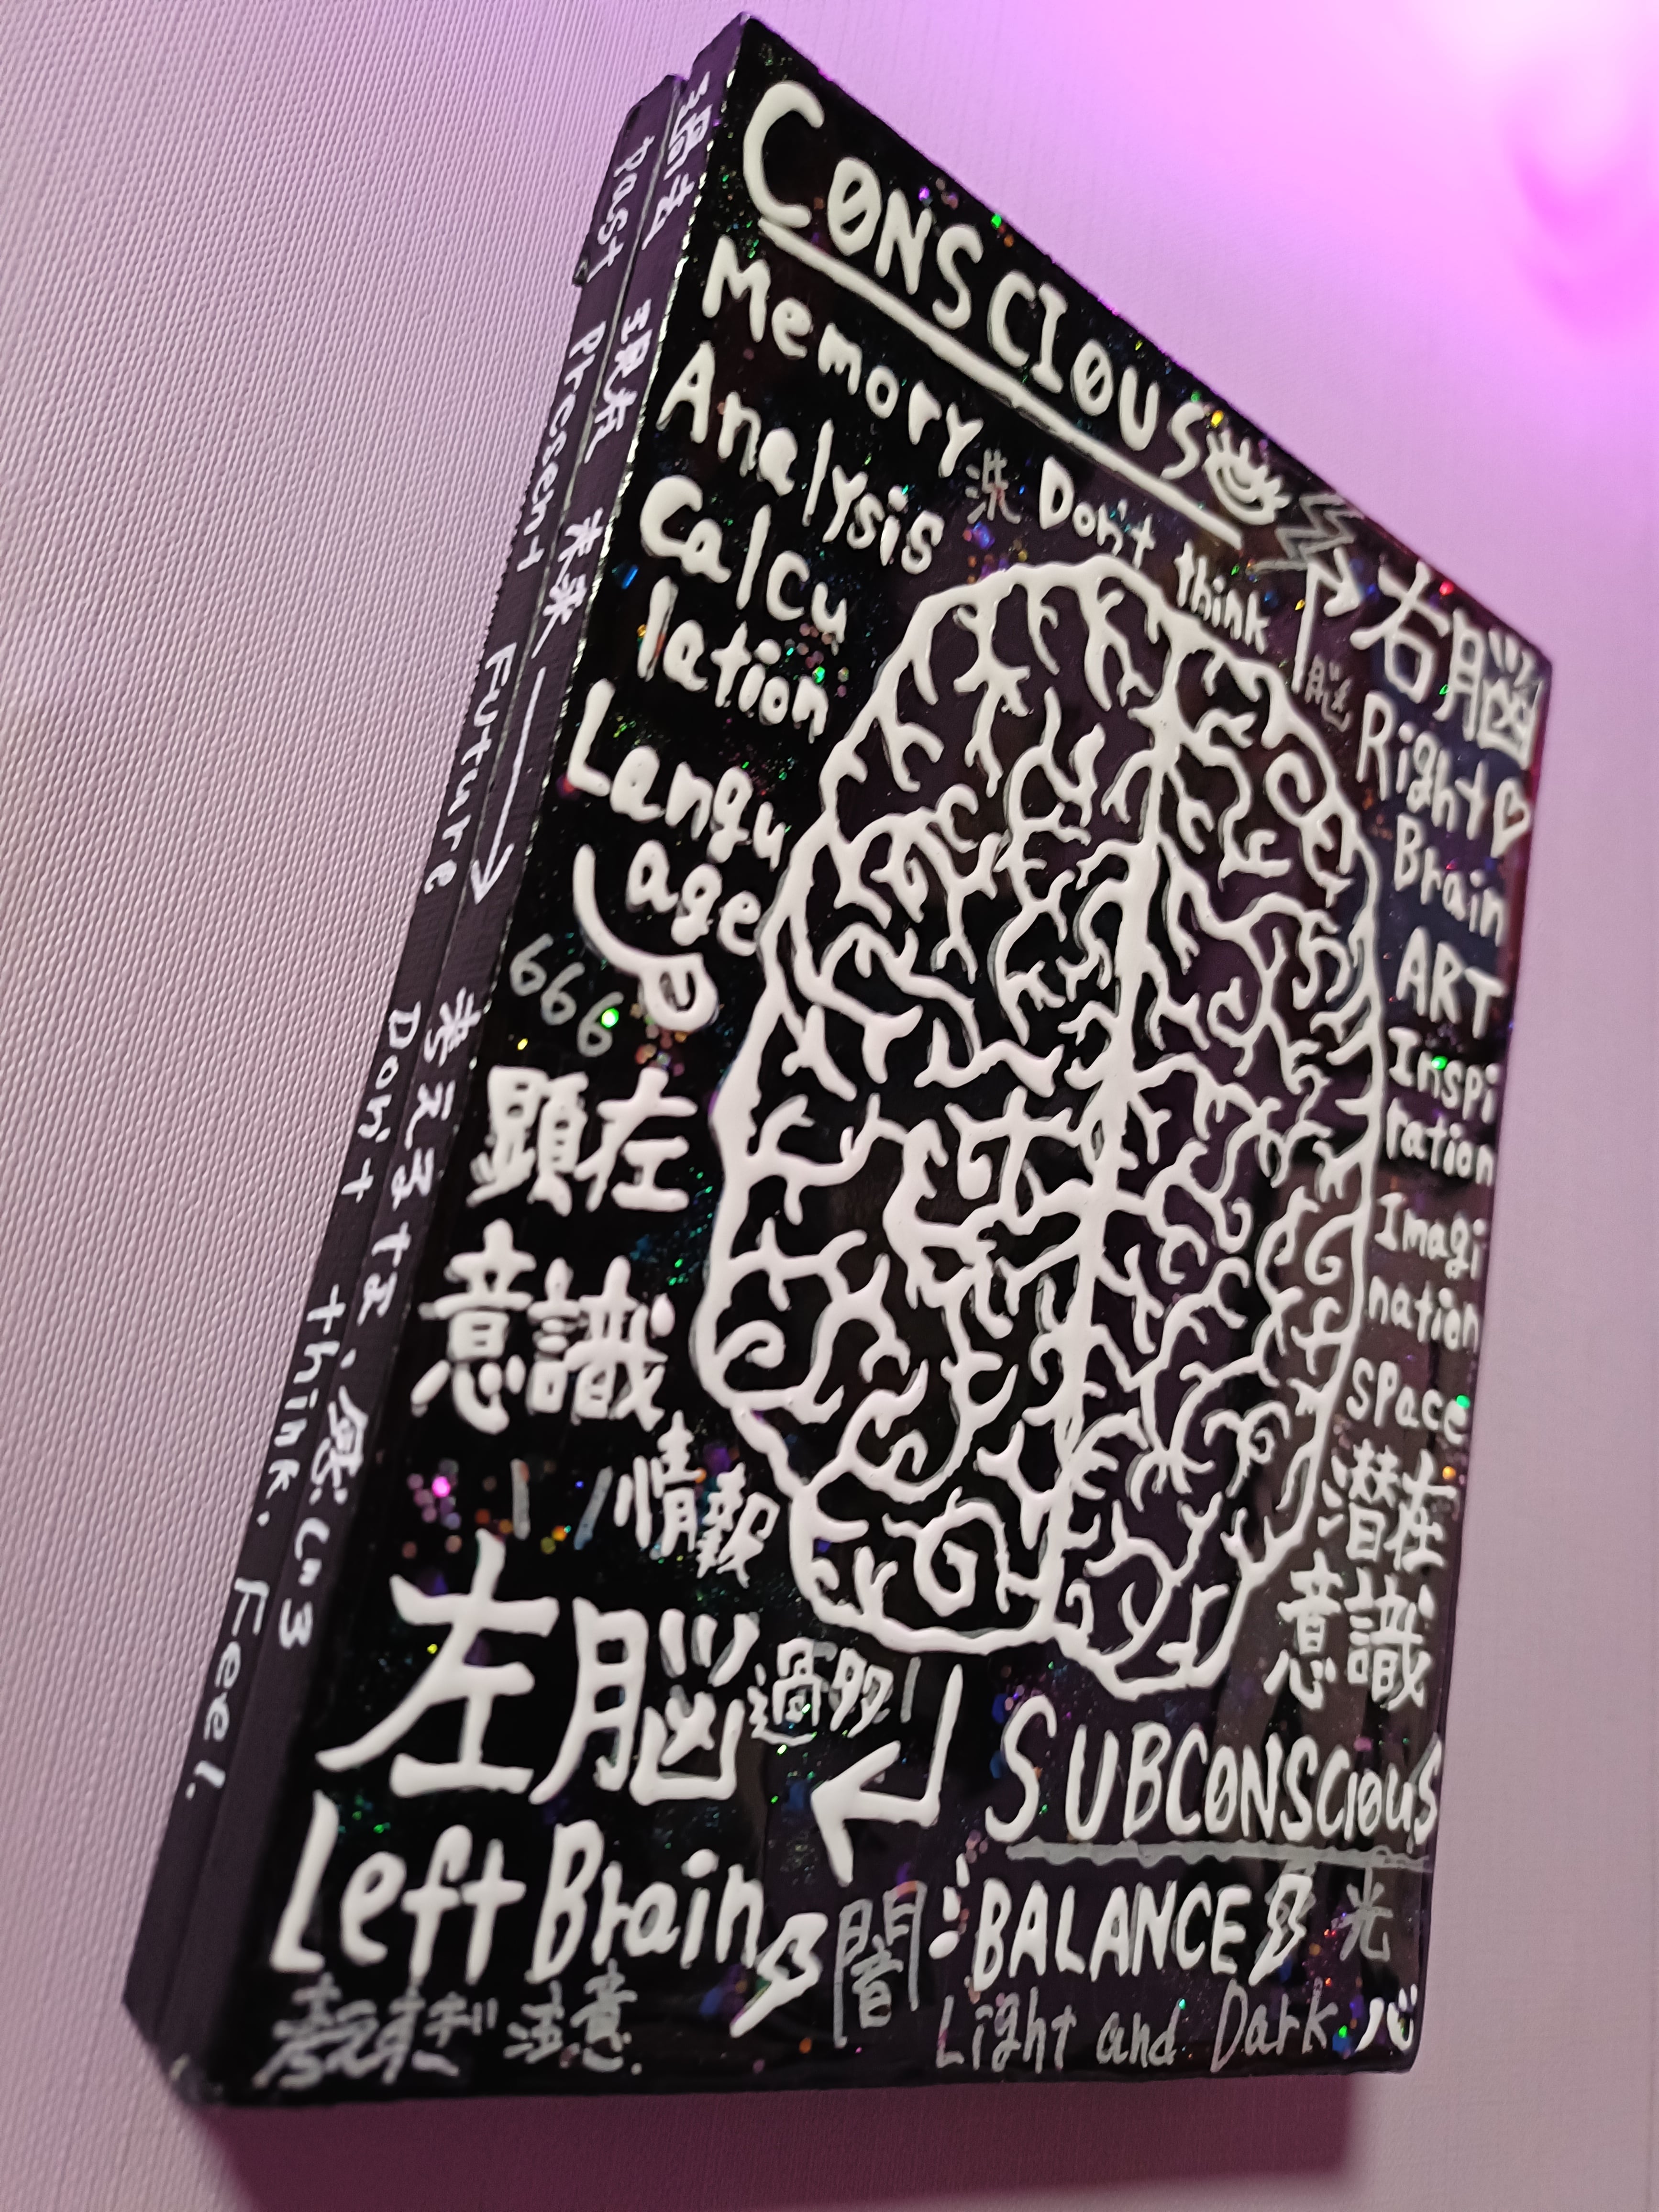 CONSCIOUS
Memory
Analysis
Calcu
lation
Langu
age
666
顕在
意識
情報
過多
左脳
Left Brain
考えすぎ注意.
洗
Don't think
脳
右脳
Right
Brain
ART
Inspi
ration
Imagi
nation
space
潜在
意識
SUBCONSCIOUS
闇
BALANCE
光
Light and Dark
過去 現在 未来 → 考えるな.感じろ
Past Present Future Don't think. Feel.